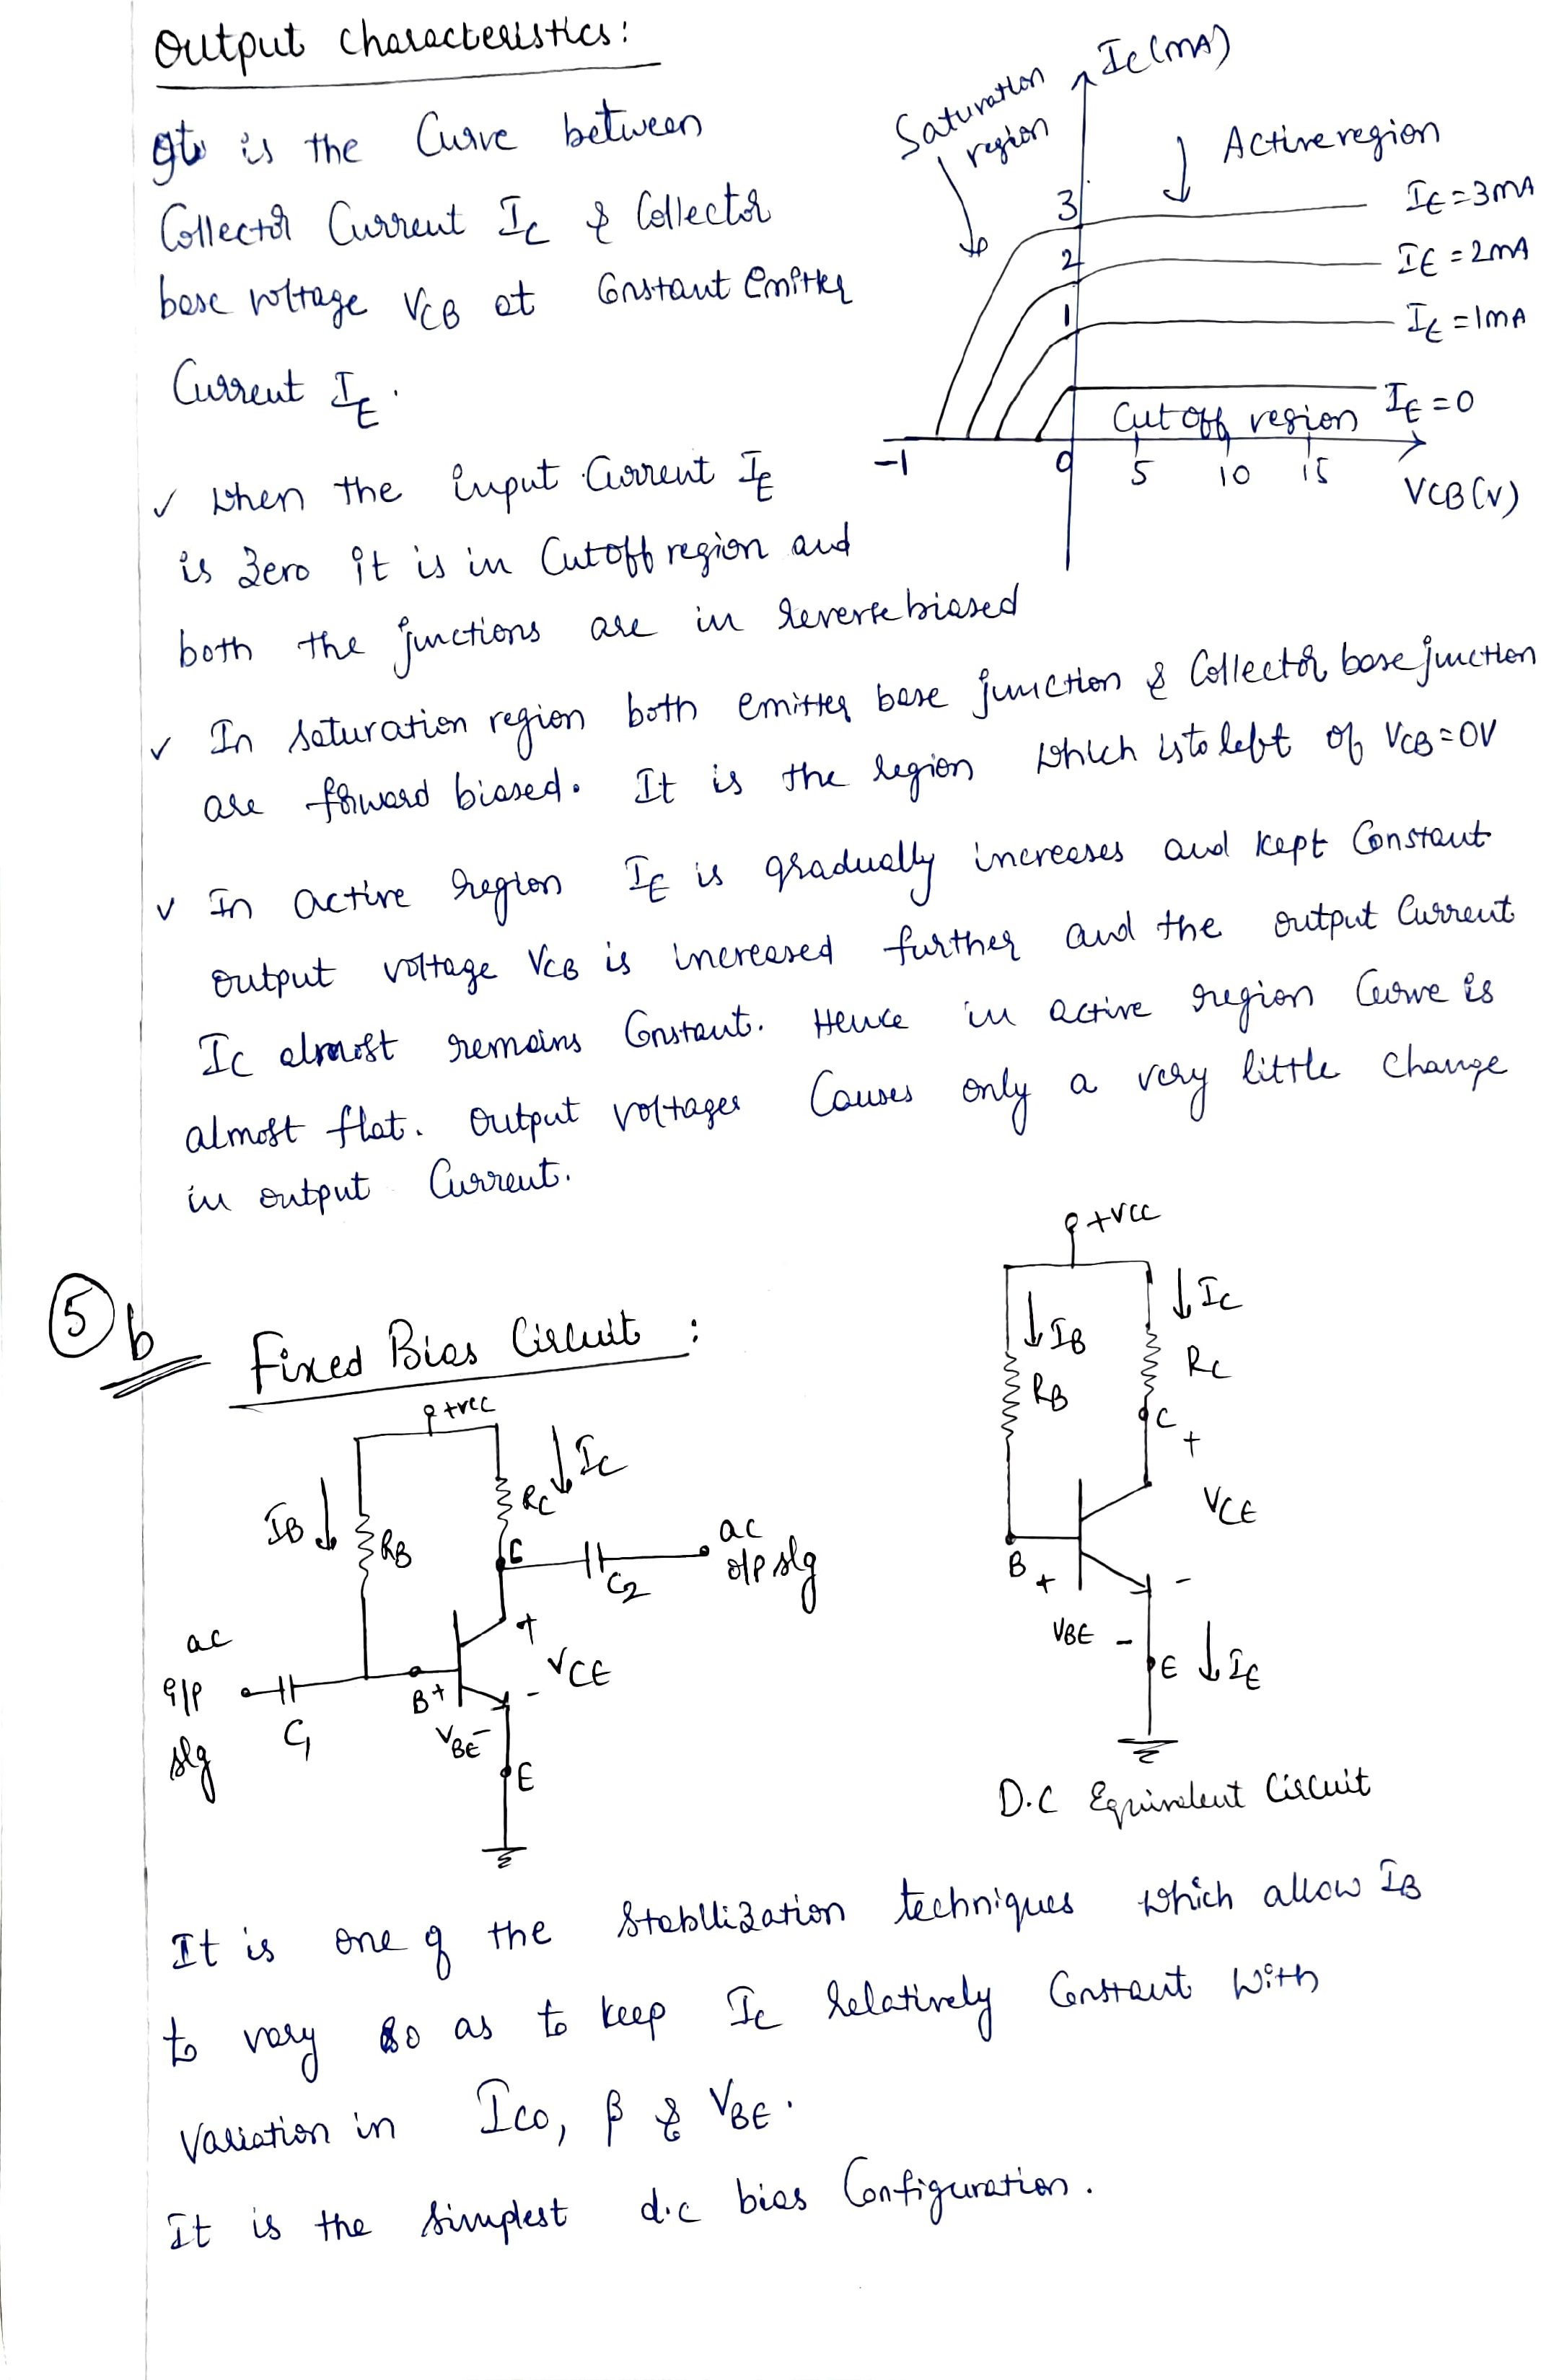 Output characteristics:
It is the Curve between
Collector Current IC & Collector
base voltage VCB at Constant Emitter
Current IE.
Saturation
region
IC(mA)
Active region
3
IE=3mA
2
IE=2mA
1
IE=1mA
IE=0
Cut off region
-1
0
5
10
15
VCB(V)
✓ When the input Current IE
is zero it is in Cutoff region and
both the junctions are in reverse biased
✓ In saturation region both emitter base junction & Collector base junction
are forward biased. It is the region which is to left of VCB=0V
✓ In active region IE is gradually increases and kept Constant
output voltage VCB is increased further and the output Current
IC almost remains Constant. Hence in active region Curve is
almost flat. Output voltages Causes only a very little change
in output Current.
5 b
Fixed Bias Circuit :
+VCC
IC
IB
RC
RB
C
C2
ac
o/p sig
+
VCE
ac
i/p
sig
C1
B+
-
VBE-
E
+VCC
IC
IB
RC
RB
C
+
VCE
B
+
-
VBE
-
E
IE
D.C Equivalent Circuit
It is one of the Stabilization techniques which allow IB
to vary so as to keep IC Relatively Constant With
Variation in ICO, β & VBE.
It is the simplest d.c bias Configuration.